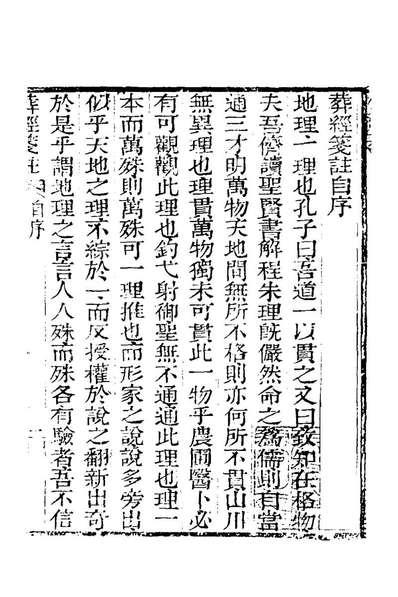 葬經箋註自序
地理一理也孔子曰吾道一以貫之又曰致知在格物
夫吾儕讀聖賢書解程朱理旣儼然命之爲儒則自當
通三才明萬物天地間無所不格則亦何所不貫山川
無異理也理貫萬物獨未可貫此一物乎農圃醫卜必
有可觀觀此理也釣弋射御聖無不通通此理也理一
本而萬殊則萬殊可一理推也而形家之說說多旁出
似乎天地之理不綜於一而反授權於說之翻新出奇
於是乎謂地理之言言人人殊而殊各有驗者吾不信
葬經箋註 自序